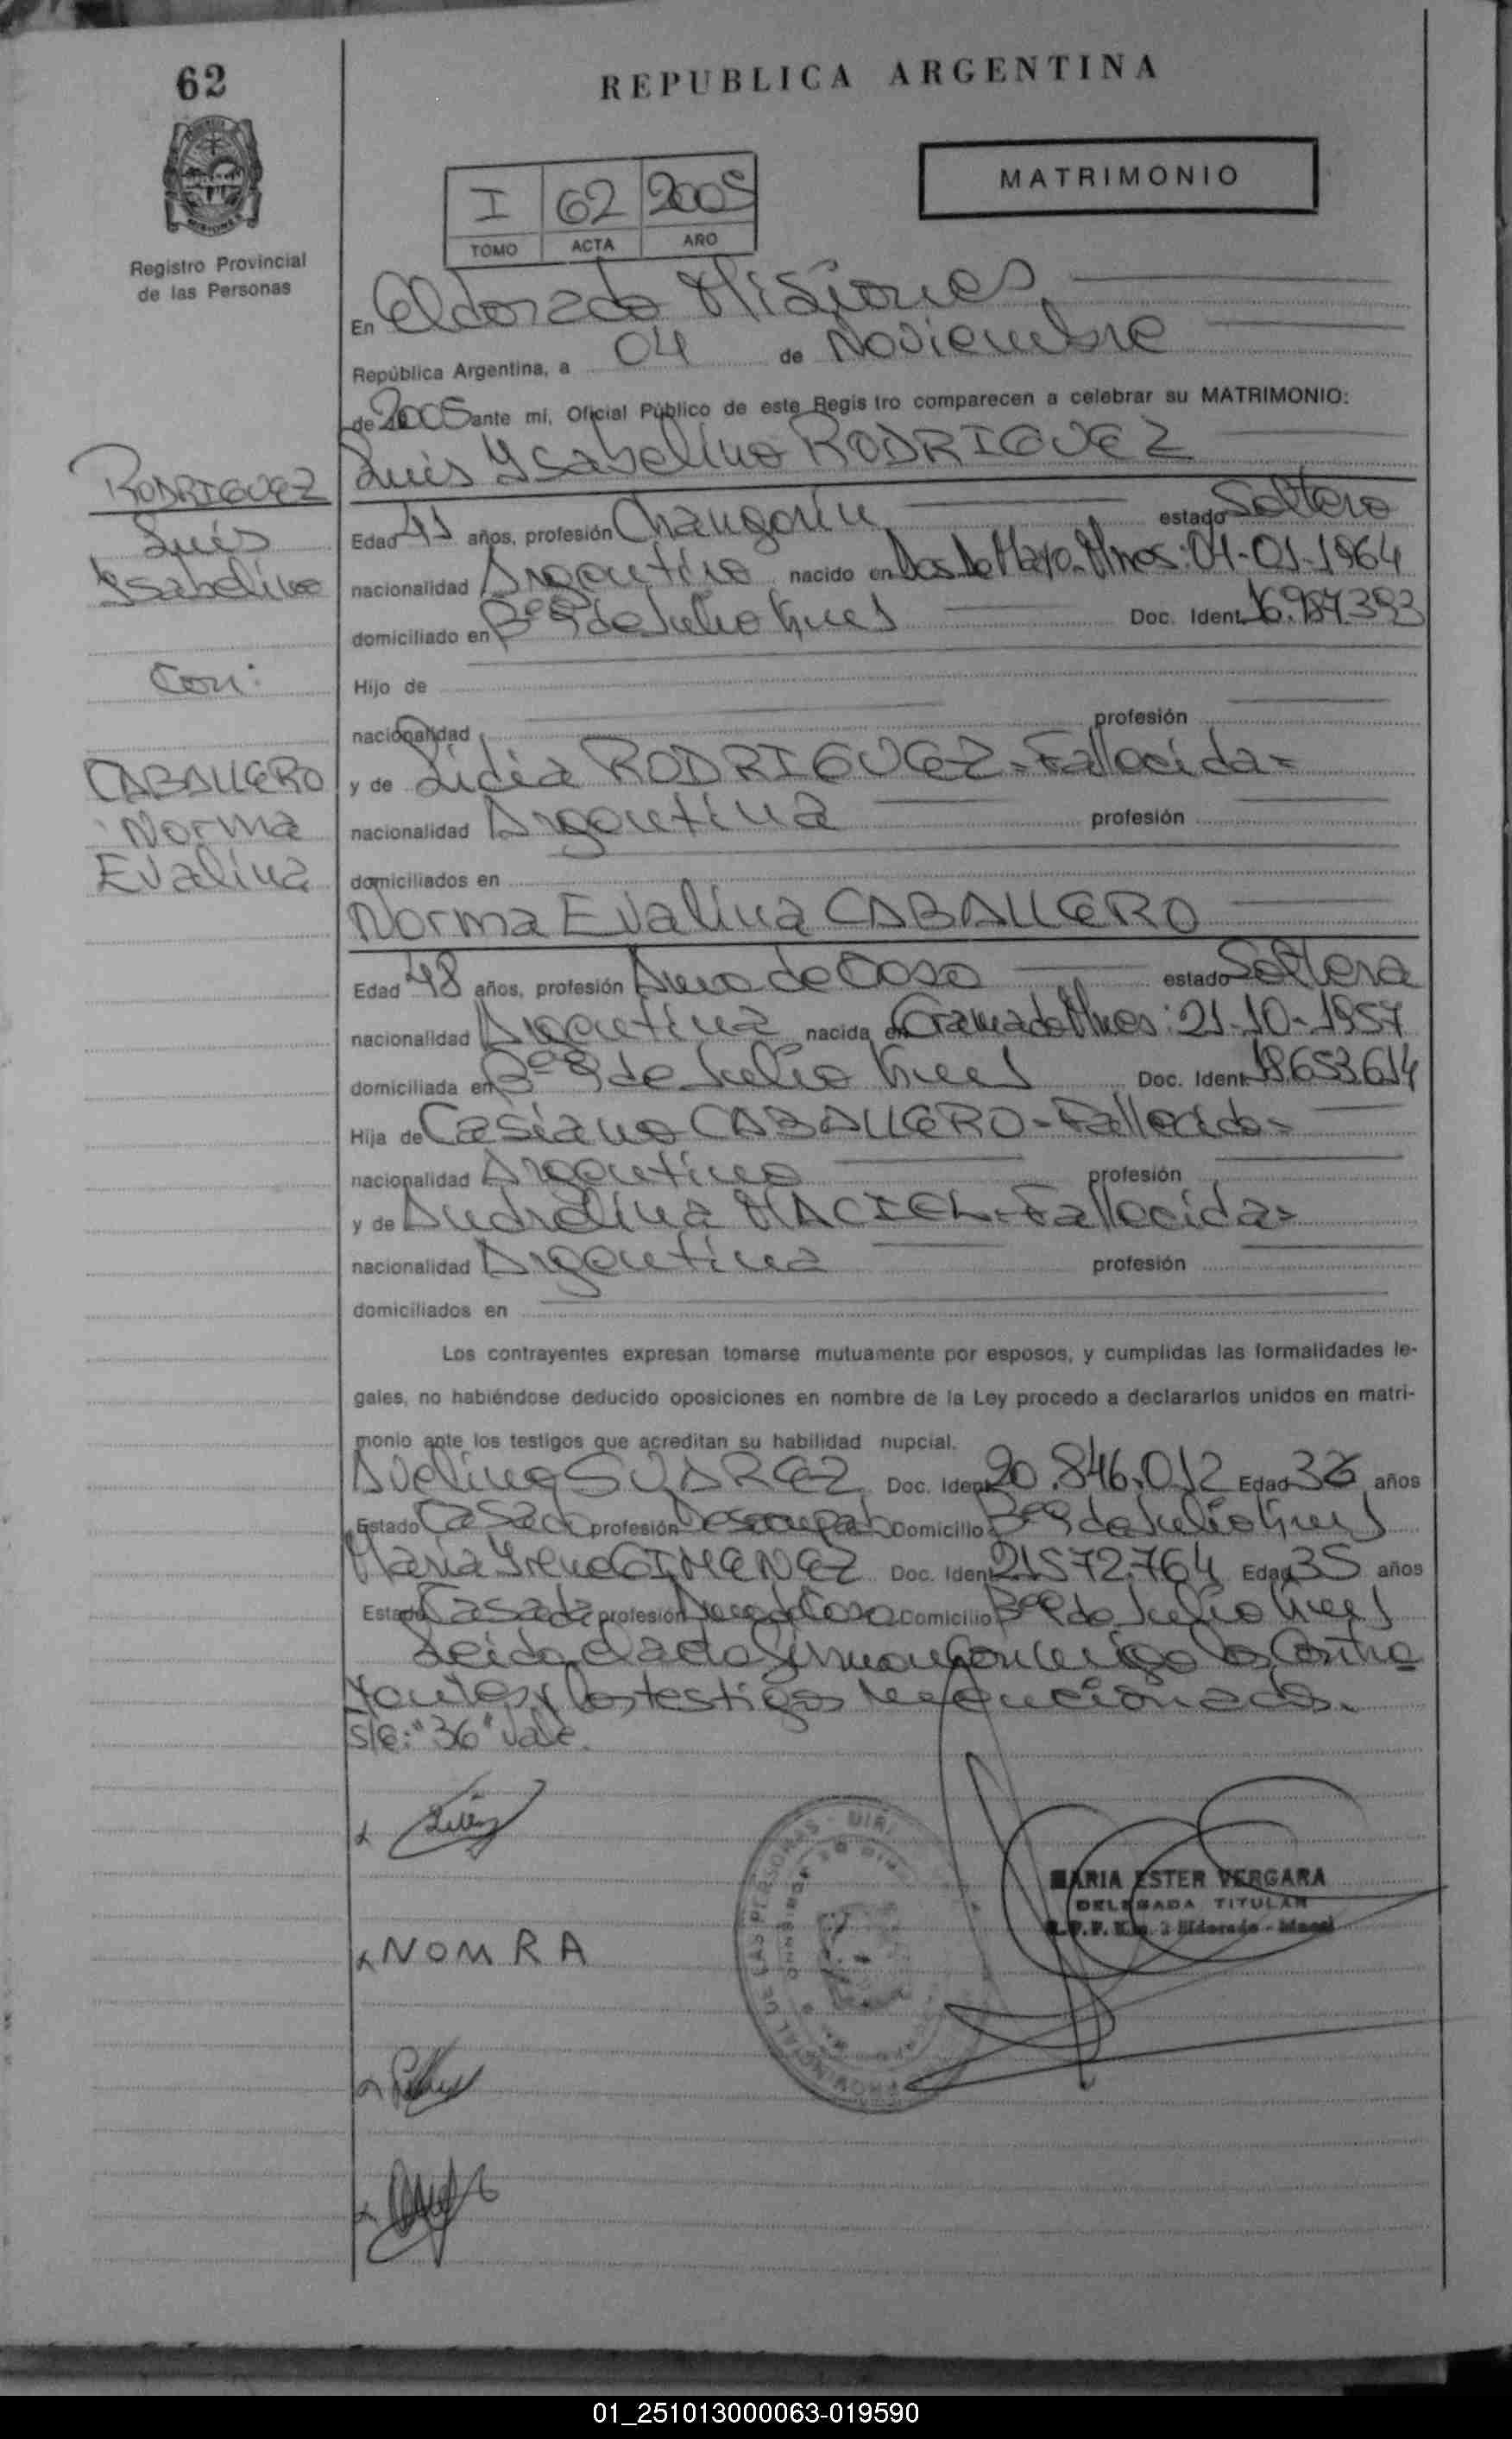 62
REPUBLICA ARGENTINA
MATRIMONIO
I 62 2005
TOMO ACTA AÑO
Registro Provincial
de las Personas
En Eldorado Misiones
República Argentina, a 04 de Noviembre
de 2005 ante mi, Oficial Público de este Registro comparecen a celebrar su MATRIMONIO:
Luis Ysabelino RODRIGUEZ
RODRIGUEZ
Luis
Ysabelino
Con:
CABALLERO
Norma
Evalina
Edad 41 años, profesión Changarín estado Soltero
nacionalidad Argentino nacido en Dos de Mayo-Mnes: 04-01-1964
domiciliado en Bº 9 de Julio Doc. Ident. 16.987.393
Hijo de
nacionalidad profesión
y de Lidia RODRIGUEZ-Fallecida=
nacionalidad Argentina profesión
domiciliados en
Norma Evalina CABALLERO
Edad 48 años, profesión Ama de Casa estado Soltera
nacionalidad Argentina nacida en Gramado Mnes: 21-10-1957
domiciliada en Bº 9 de Julio Doc. Ident. 18.653.614
Hija de Casiano CABALLERO-Fallecido=
nacionalidad Argentino profesión
y de Andrelina MACIEL-Fallecida=
nacionalidad Argentina profesión
domiciliados en
Los contrayentes expresan tomarse mutuamente por esposos, y cumplidas las formalidades le-
gales, no habiéndose deducido oposiciones en nombre de la Ley procedo a declararlos unidos en matri-
monio ante los testigos que acreditan su habilidad nupcial.
Avelino SUAREZ Doc. Ident. 20.846.012 Edad 36 años
Estado Casado profesión Desocupado Domicilio Bº 9 de Julio
Maria Irene GIMENEZ Doc. Ident. 21.572.764 Edad 35 años
Estado Casada profesión Ama de Casa Domicilio Bº 9 de Julio
Leida el acta firman conmigo los Contra
yentes y los testigos mencionados.
S/e: "36" Vale.
x NOMRA
MARIA ESTER VERGARA
DELEGADA TITULAR
R.P.P. Km. 2 Eldorado - Mnes
01_251013000063-019590